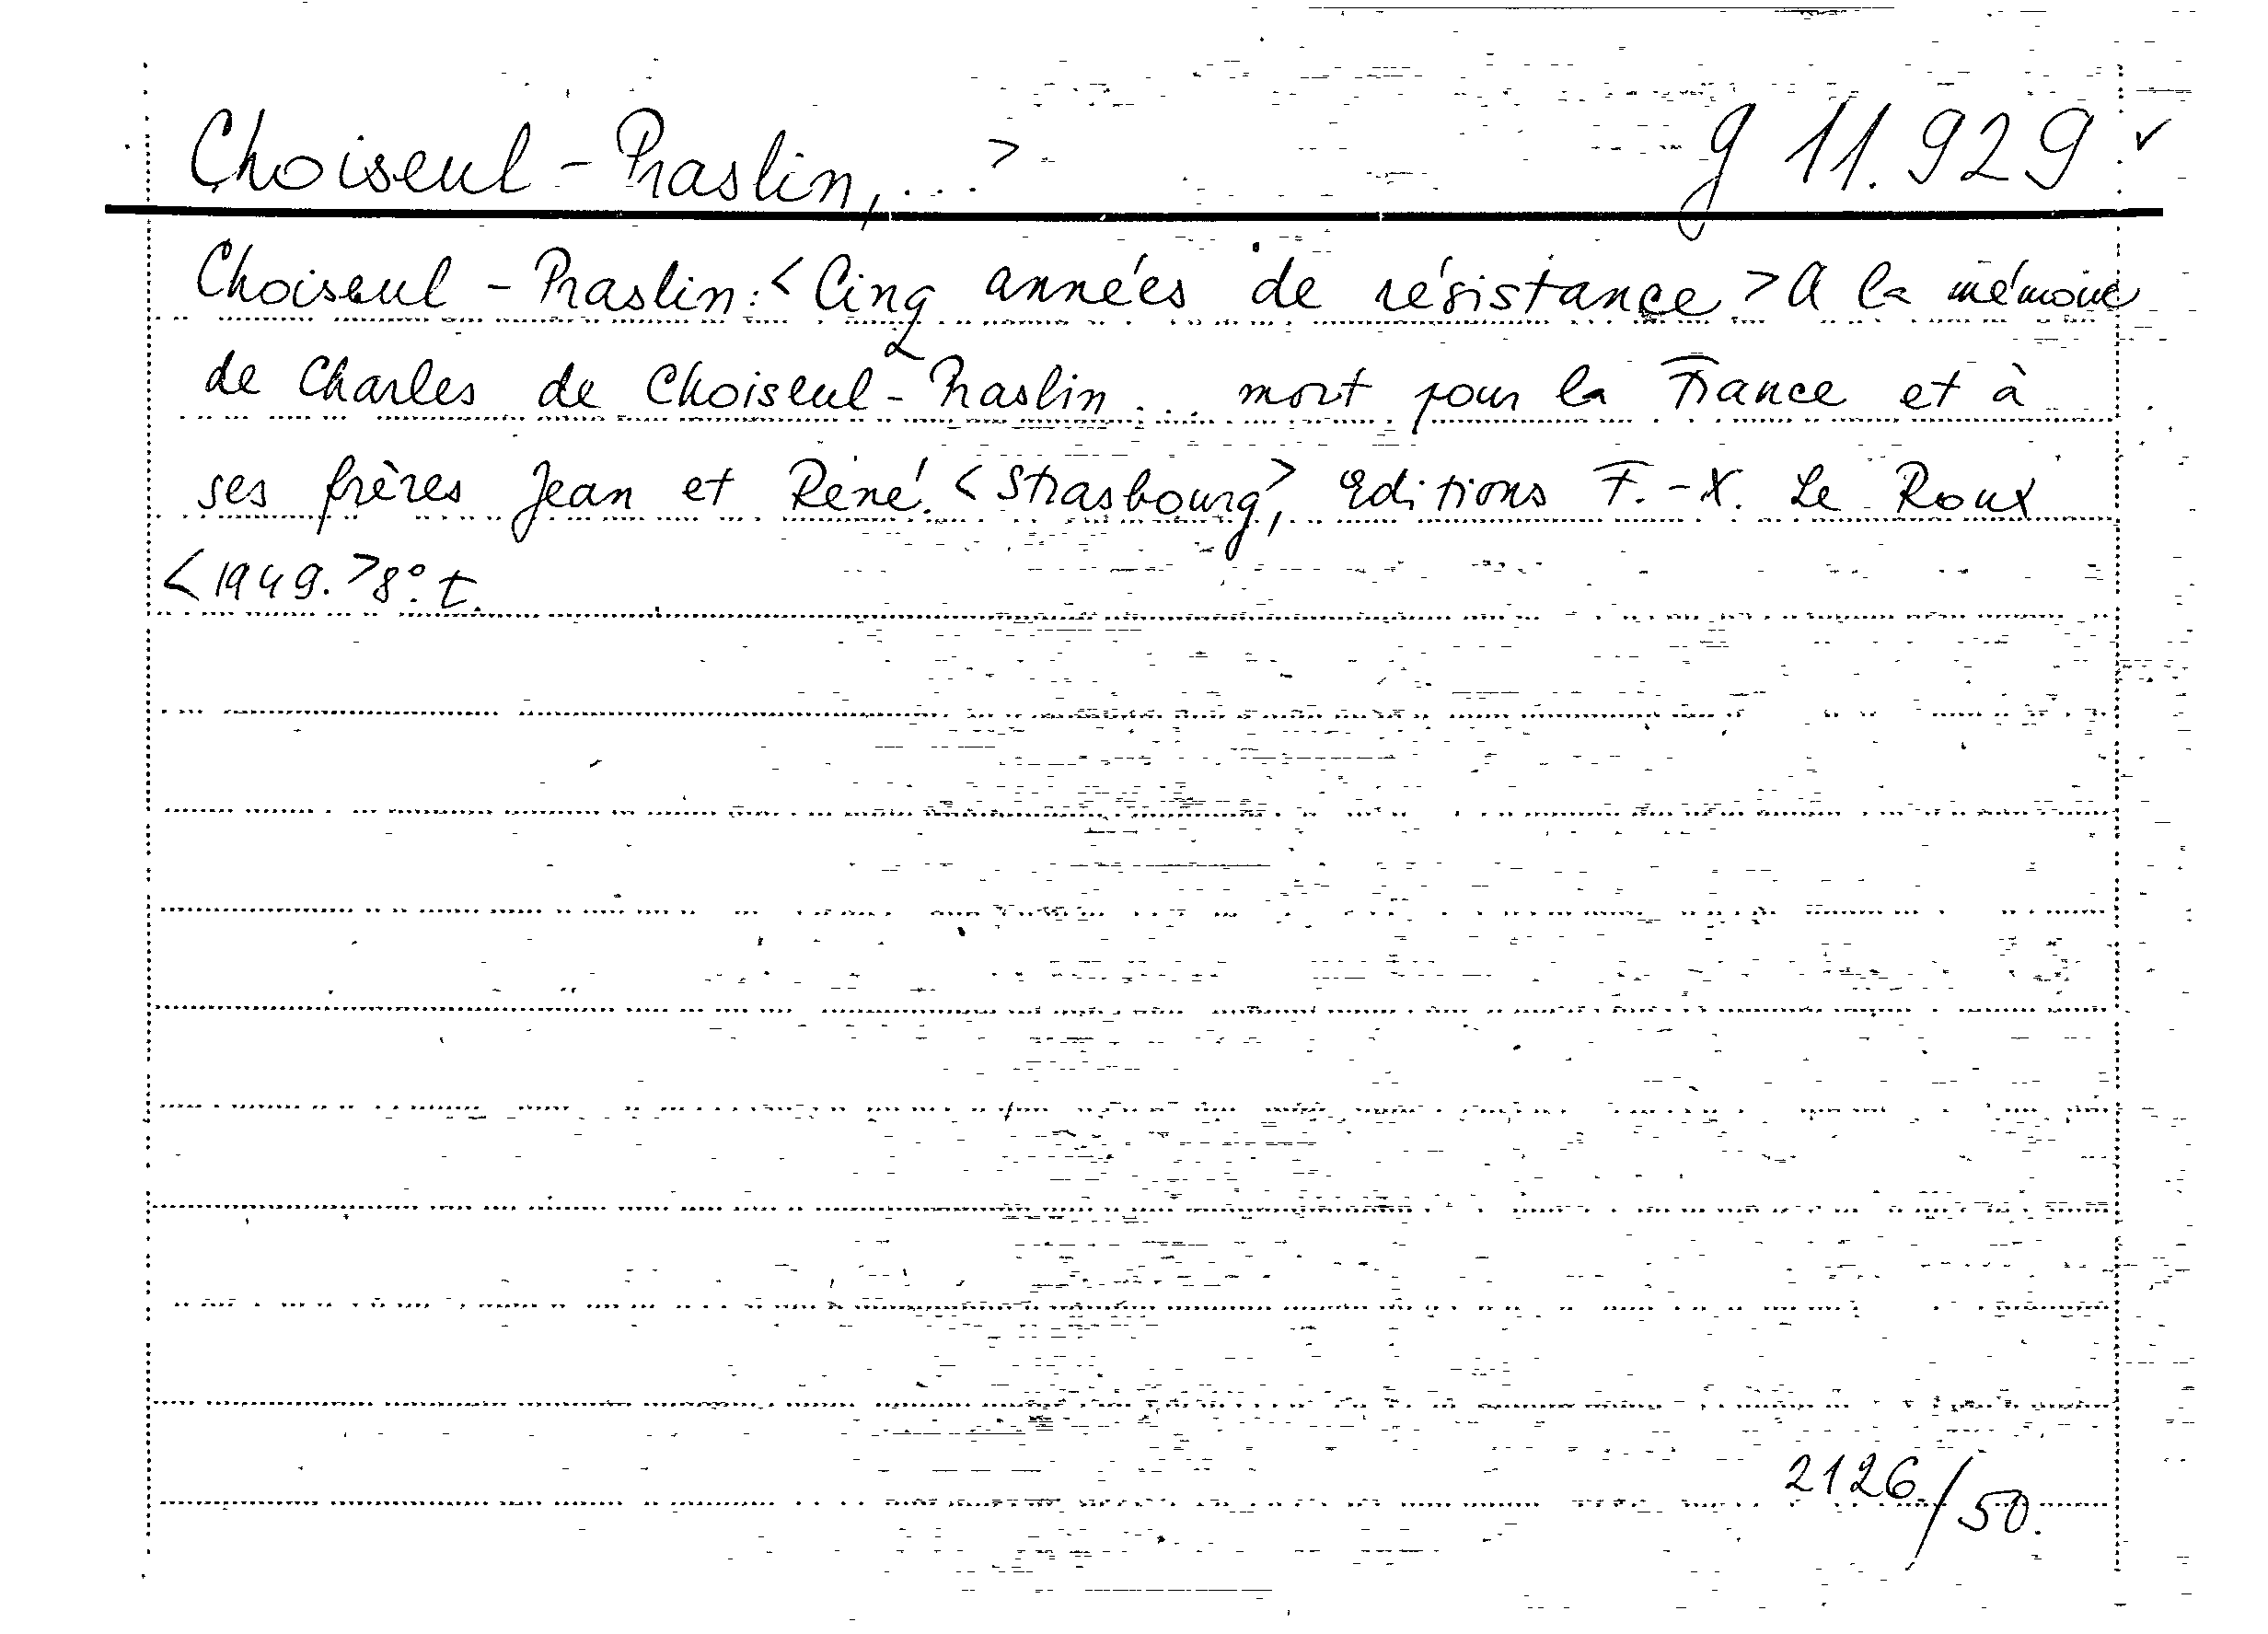 Choiseul - Praslin, ...> g 11.929 ✓
Choiseul - Praslin: <Cinq années de résistance> A la mémoire
de Charles de Choiseul - Praslin ... mort pour la France et à
ses frères Jean et René. <Strasbourg>, Editions F.-X. Le Roux
<1949.> 8°. t.
2126/50.